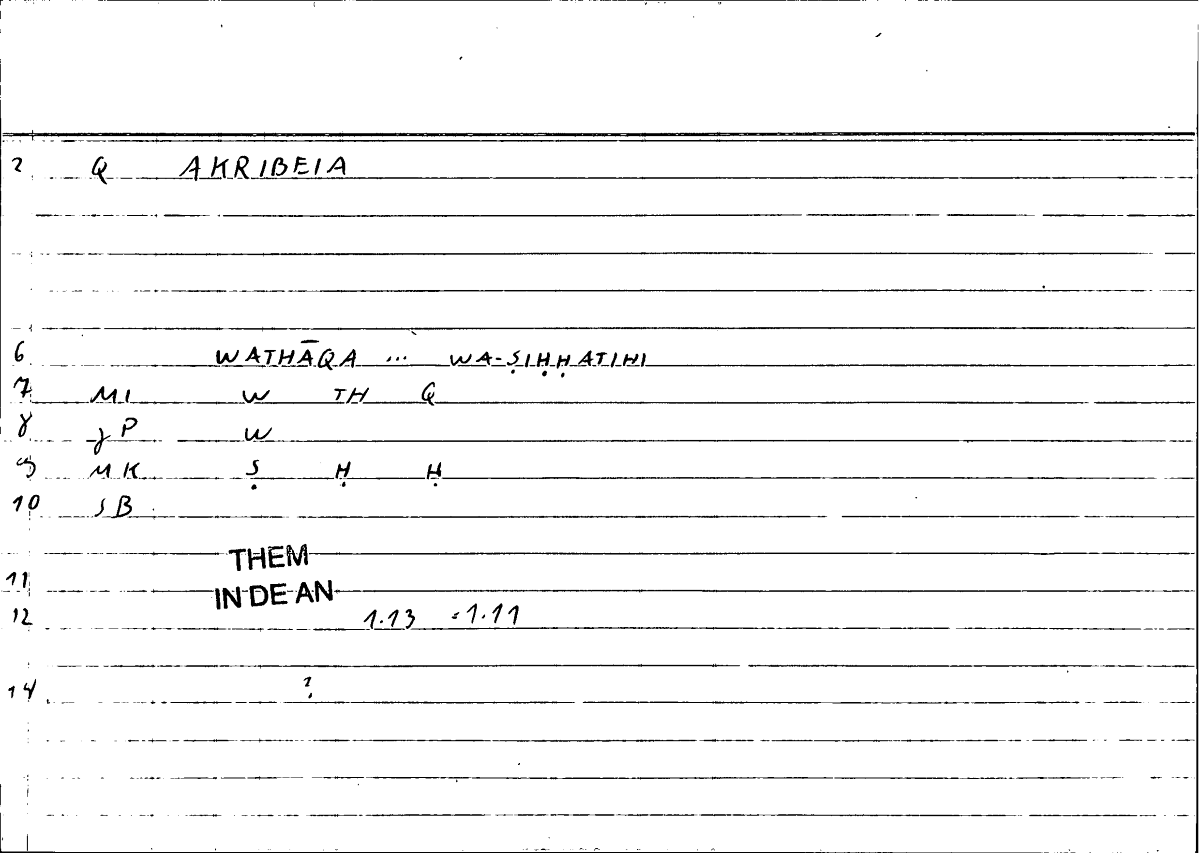 2 Q AKRIBEIA
6 WATHĀQA ... WA-ṢIḤḤATIHI
7 MI W TH Q
8 JP W
9 MK Ṣ Ḥ Ḥ
10 SB
THEM
11 IN DE AN
12 1.13 = 1.11
14 ?